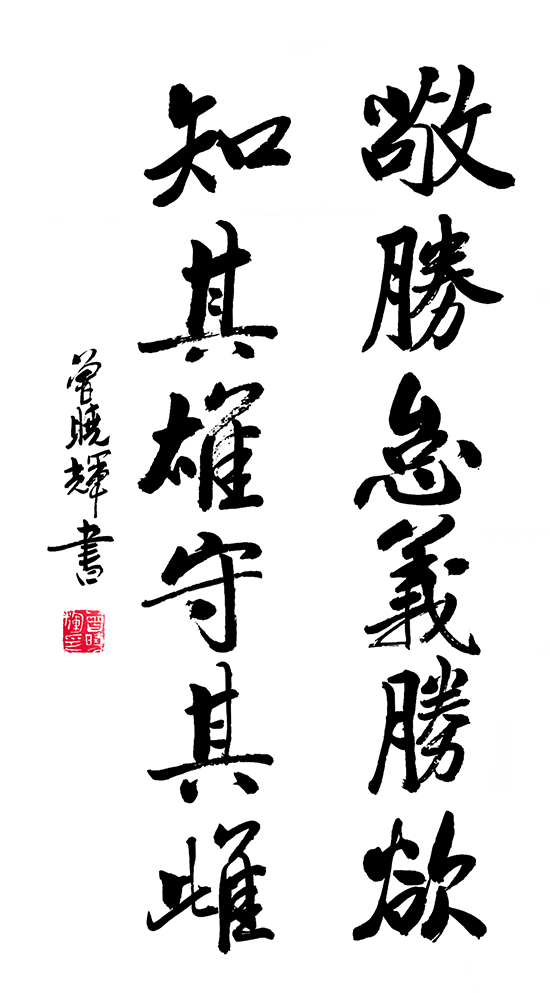 敬勝怠義勝欲
知其雄守其雌
曾曉輝書
曾曉輝印